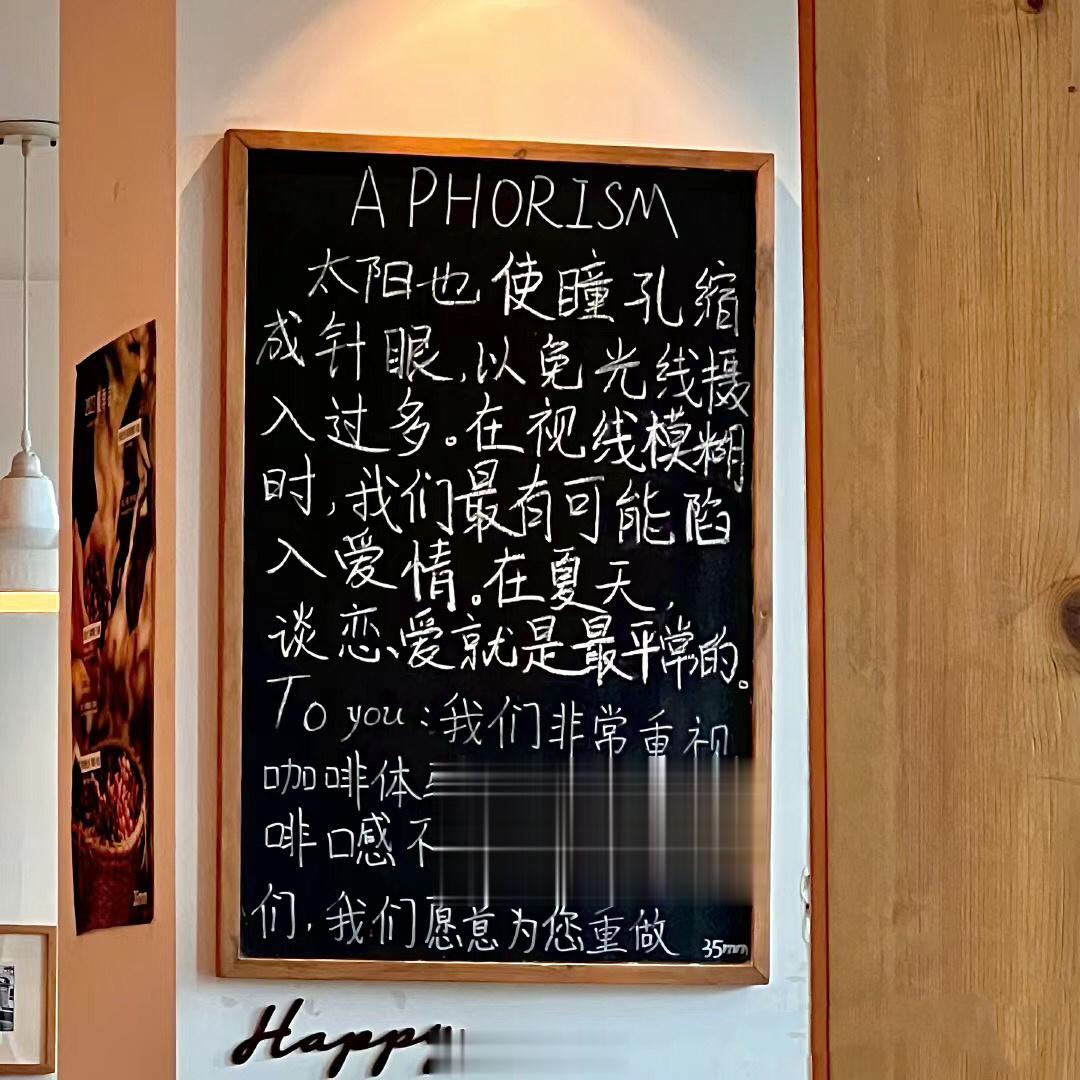 APHORISM
太阳也使瞳孔缩
成针眼,以免光线摄
入过多。在视线模糊
时,我们最有可能陷
入爱情。在夏天,
谈恋爱就是最平常的。
To you:我们非常重视
咖啡体
啡口感不
们,我们愿意为您重做
35mm
Happy